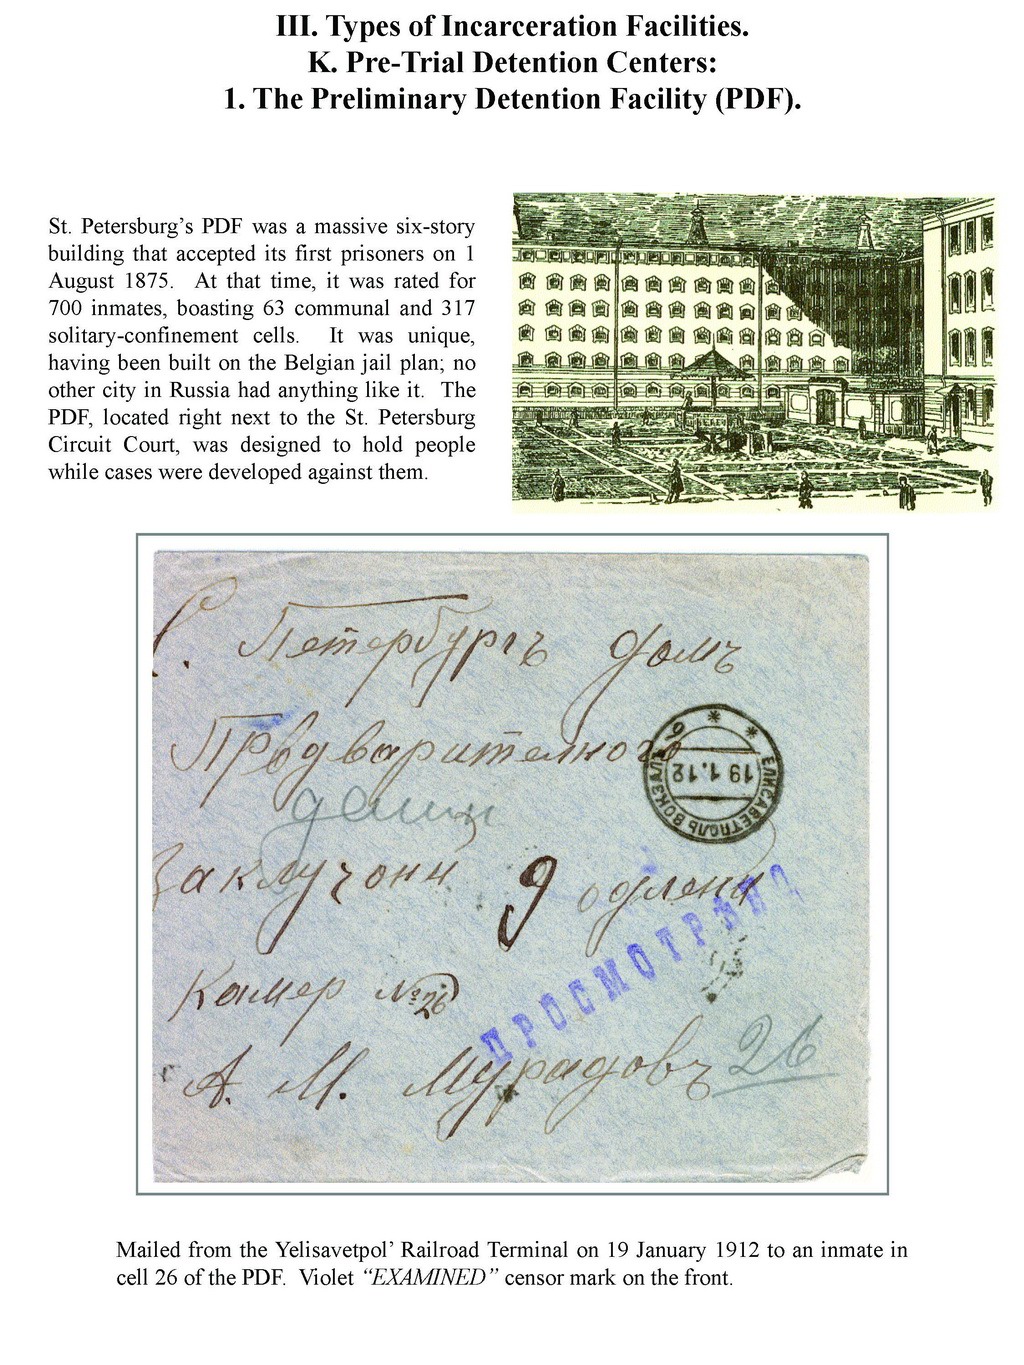 III. Types of Incarceration Facilities.
K. Pre-Trial Detention Centers:
1. The Preliminary Detention Facility (PDF).
St. Petersburg’s PDF was a massive six-story
building that accepted its first prisoners on 1
August 1875. At that time, it was rated for
700 inmates, boasting 63 communal and 317
solitary-confinement cells. It was unique,
having been built on the Belgian jail plan; no
other city in Russia had anything like it. The
PDF, located right next to the St. Petersburg
Circuit Court, was designed to hold people
while cases were developed against them.
С. Петербургъ домъ
Прѣдварителного
заключони 9 одлени
Камер №26
А. М. Мурадовъ 26
ЕЛИСАВЕТПОЛЬ ВОКЗАЛЪ
19.1.12
ПРОСМОТРѢНО
Mailed from the Yelisavetpol’ Railroad Terminal on 19 January 1912 to an inmate in
cell 26 of the PDF. Violet “EXAMINED” censor mark on the front.